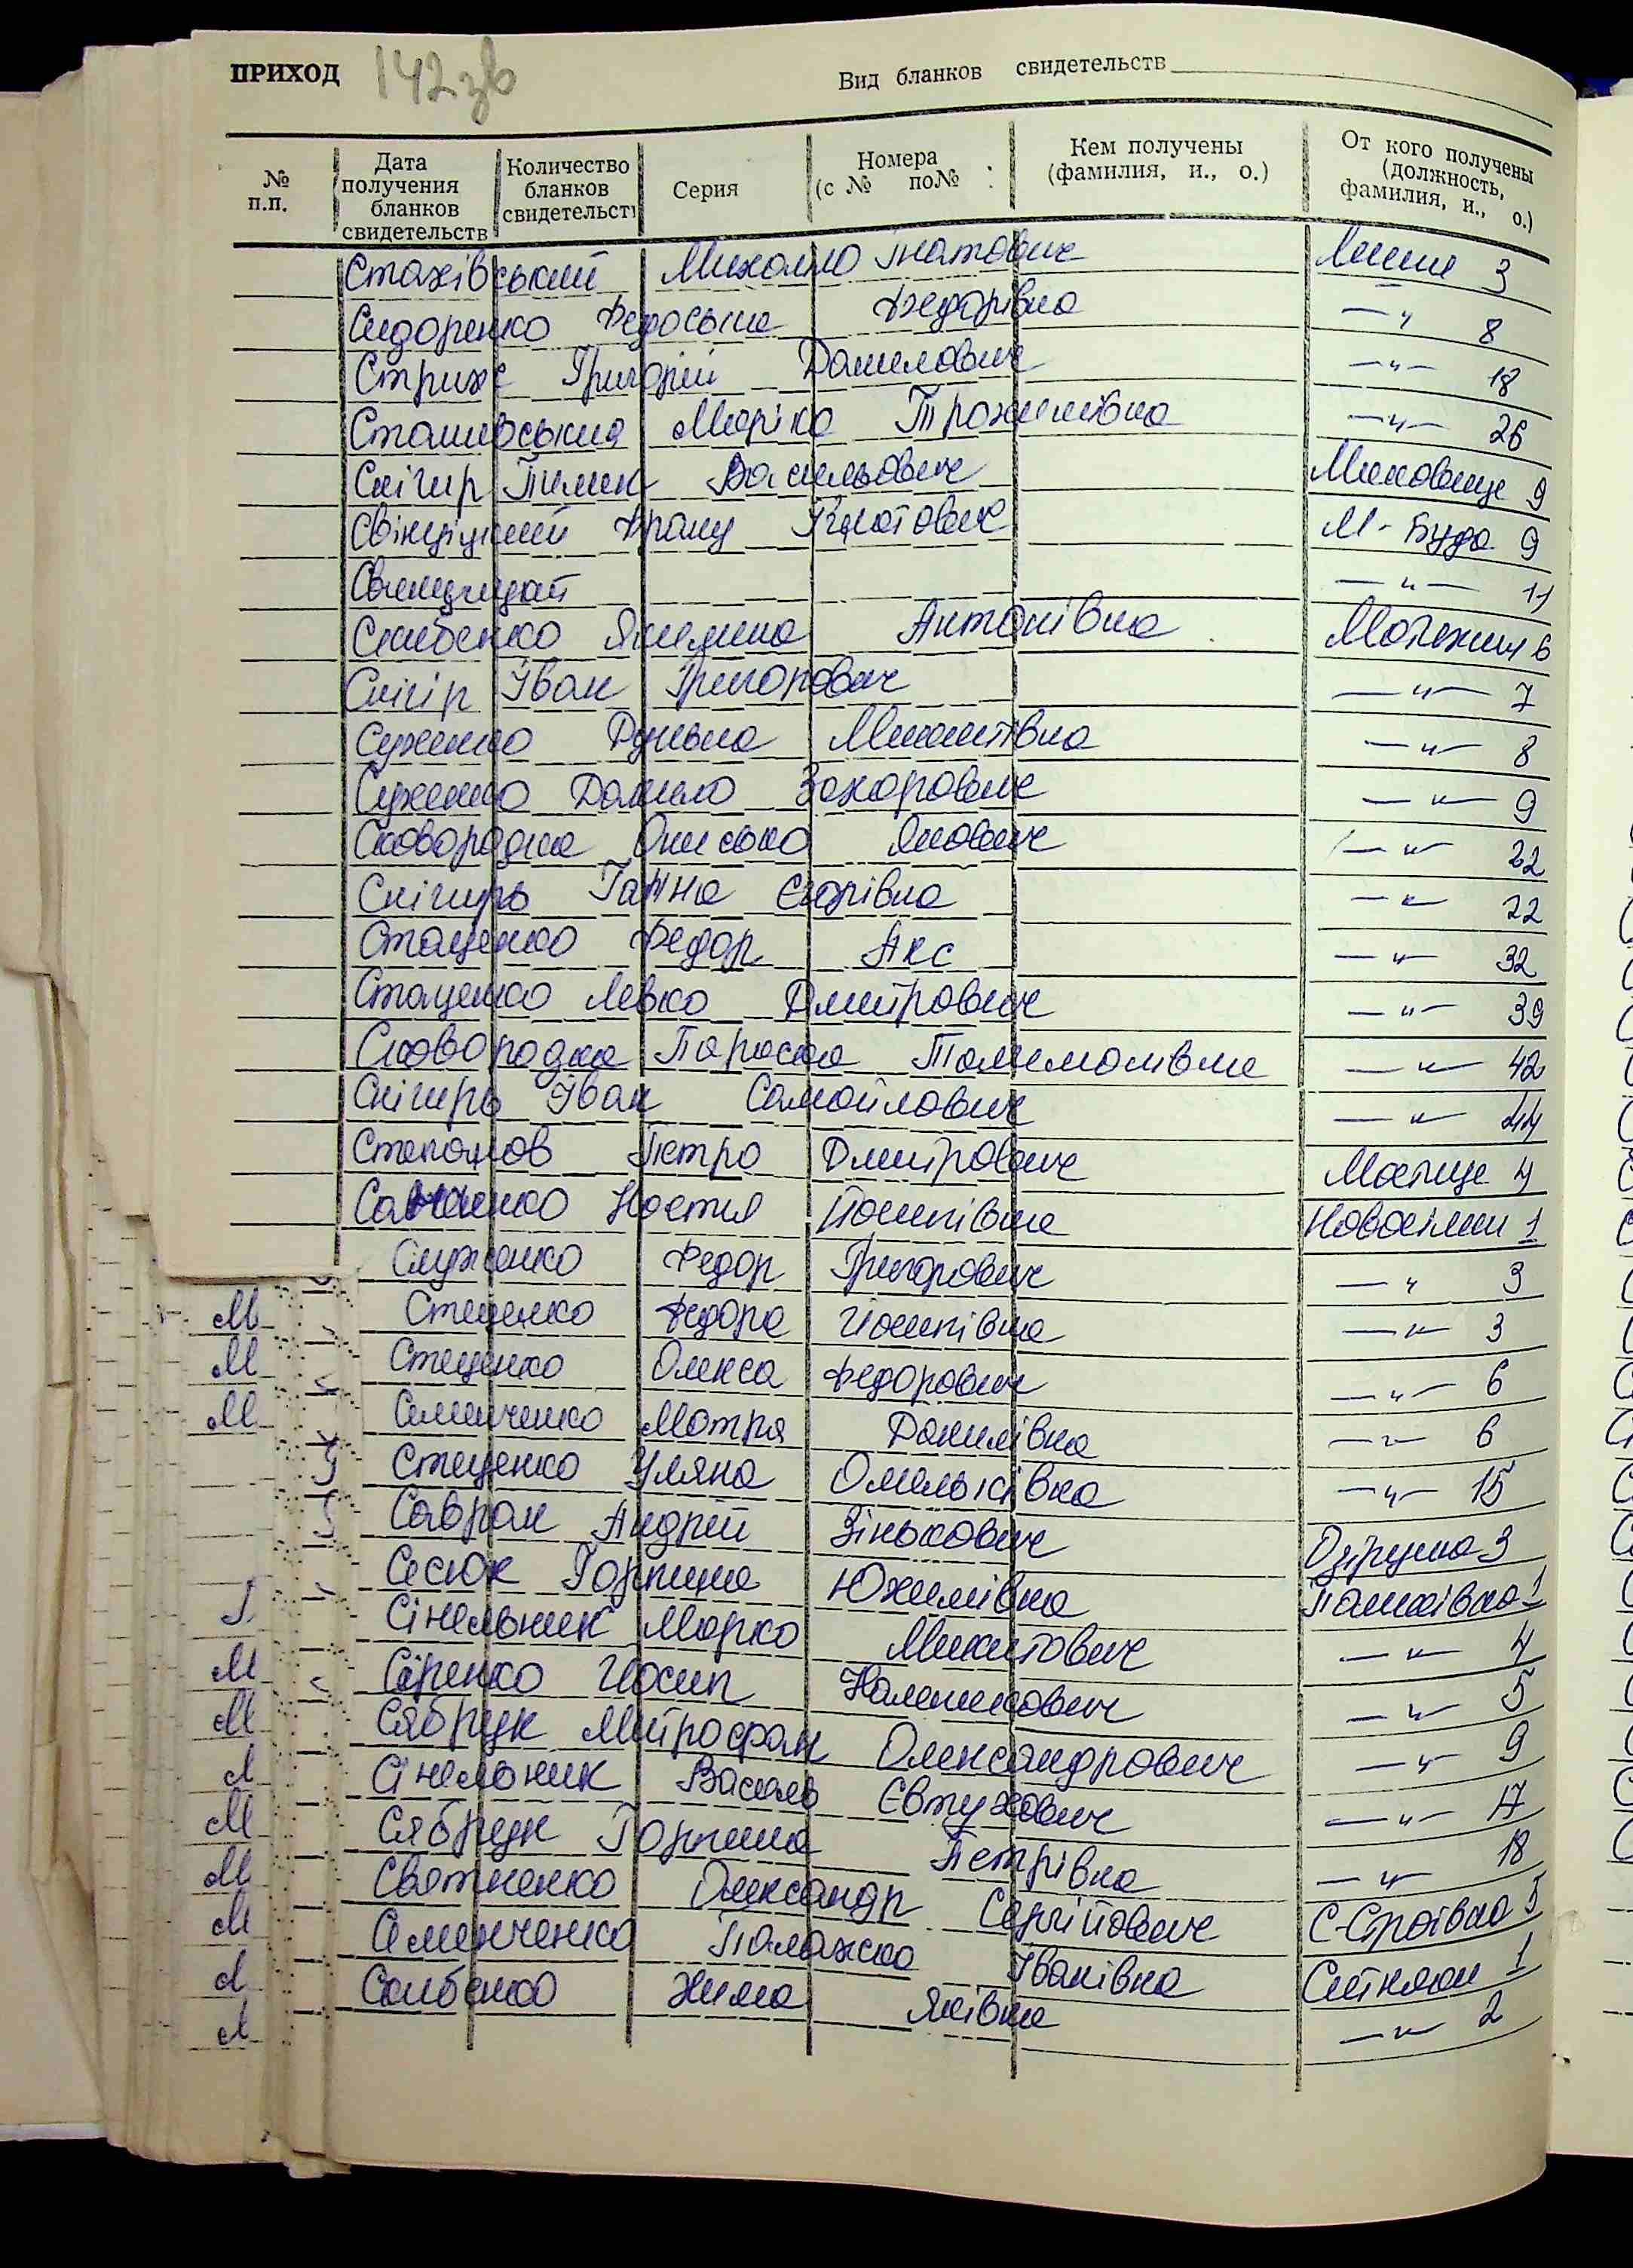 ПРИХОД 142зв Вид бланков свидетельств
№ п.п. Дата получения бланков свидетельств Количество бланков свидетельств Серия Номера (с № по№ Кем получены (фамилия, и., о.) От кого получены (должность, фамилия, и., о.)
Стахівський Михайло Гнатович 3
Сидоренко Федосья Федорівна —"— 8
Стриж Григорій Данилович —"— 18
Сташивська Маріка Трохимівна —"— 26
Снігир Тимек Васильович 9
Франц М-Буда 9
—"— 11
Антонівна Мотижин 6
Снігір Іван Григорович —"— 7
Суженко Микитівна —"— 8
Суженко Данило Захарович —"— 9
Сковородка Онисько Якович —"— 22
Снігирь Ганна Єгорівна —"— 22
Стаценко Федор Акс —"— 32
Стаценко Левко Дмитрович —"— 39
Сковородка Параска —"— 42
Снігирь Іван Самойлович —"— 44
Степанов Петро Дмитрович 4
Настя Йосипівна Новосілки 1
Служенко Федор Григорович —"— 3
Стеценко Федора Йосипівна —"— 3
Стеценко Олекса Федорович —"— 6
Семенченко Мотря Данилівна —"— 6
Стеценко Уляна Омельківна —"— 15
Савран Андрій Зінькович Озірщина 3
Сесюк Горпина Юхимівна Пашківка 1
Сінельник Марко Микитович —"— 4
Сіренко Йосип Каленикович —"— 5
Сябрук Митрофан Олександрович —"— 9
Сінельник Василь Євтухович —"— 17
Сябрук Горпина Петрівна —"— 18
Святненко Олександр Сергійович 5
Семенченко Палажка Іванівна Ситняки 1
Скибенко Химa Яківна —"— 2